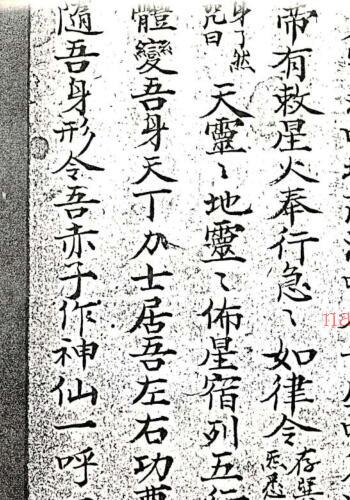 帝有敕星火奉行急〻如律令存
身了然
咒曰
天靈〻地靈〻佈星宿列五行
體變吾身天丁力士居吾左右功
隨吾身形令吾赤子作神仙一呼